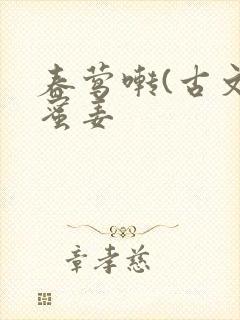 春莺啭(古文
蛮妻
章孝慈